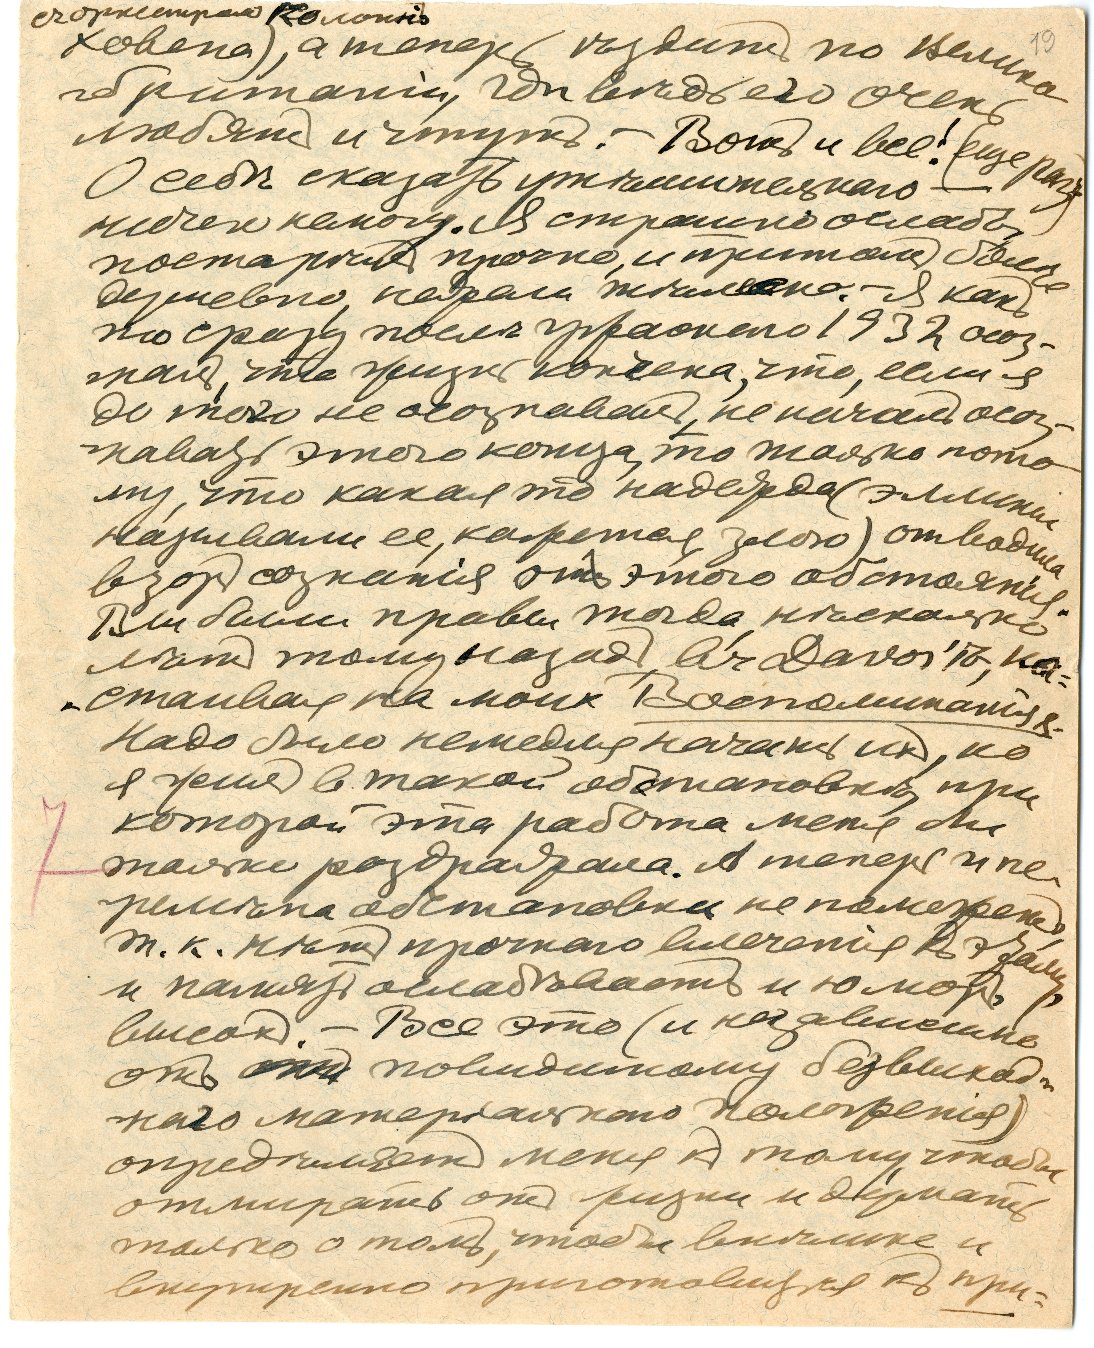 съ оркестромъ Колонн
ховена), а теперь ѣздитъ по Велико
британіи, гдѣ вездѣ его очень
любятъ и чтутъ. – Вотъ и все! (еще разъ)
О себѣ сказать утѣшительнаго —
ничего не могу. Я страшно ослабъ,
постарѣлъ прочно, и притомъ болѣе
душевно, нежели тѣлесно. – Я какъ
то сразу послѣ 1932 осоз-
налъ, что жизнь кончена, что, если я
до того не осознавалъ, не началъ осоз-
навать этого конца, то только пото
му, что какая то надежда (эллины
называли ее, кажется, злою) отводила
взоръ сознанія отъ этого обстоянія.
Вы были правы тогда, нѣсколько
лѣтъ тому назадъ, въ Davos'ѣ, на-
стаивая на моихъ Воспоминаніяхъ.
Надо было немедля начать ихъ, но
я жилъ в такой обстановкѣ, при
которой эта работа меня бы
только раздражала. А теперь и пе
ремѣна обстановки не поможетъ,
т.к. нѣтъ прочнаго влеченія къ этому,
и память ослабѣваетъ и юморъ
высохъ. – Все это (и независимо
отъ повидимому безвыход-
наго матеріальнаго положенія)
опредѣляетъ меня къ тому чтобы
отмирать отъ жизни и думать
только о томъ, чтобы внѣшне и
внутренно приготовиться къ при-